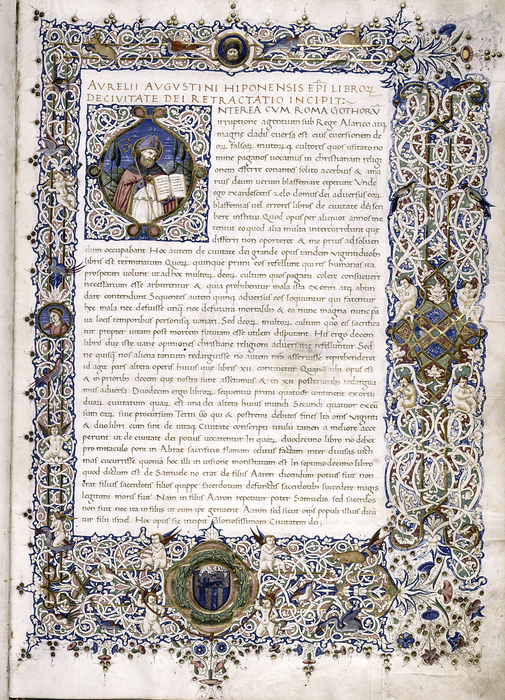 AVRELII AVGVSTINI HIPONENSIS EPI LIBROR
DE CIVITATE DEI RETRACTATIO INCIPIT:
NTEREA CVM ROMA GOTHORV
irruptione agentium sub Rege Alarico atq
magne cladis euersa est eius euersionem de
or falsor multorq cultores quos usitato no
mine paganos uocamus in christianam religi
onem referre conantes solito acerbius & ama
rius deum uerum blasfemare ceperunt Vnde
ego exardescens zelo domus dei aduersus eor
blasfemias uel errores libros de ciuitate dei scri
bere institui Quod opus per aliquot annos me
tenuit eo quod alia multa intercurrebant que
differri non oporteret & me prius ad soluen
dum occupabant. Hoc autem de ciuitate dei grande opus tandem uigintiduob
libris est terminatum Quor quinque primi eos refellunt qui res humanas ita
prosperari uolunt ut ad hoc multor deor cultum quos pagani colere consueuer
necessarium esse arbitrentur & quia prohibentur mala ista exoriri atq abun
dare contendunt Sequentes autem quinq aduersus eos loquuntur qui fatentur
hec mala nec defuisse unq nec defutura mortalibus & ea nunc magna nunc pa
ua locis temporibus personisq uariari. Sed deor multor cultum quo eis sacrifica
tur propter uitam post mortem futuram esse utilem disputant. His ergo decem
libris due iste uane opiniones christiane religioni aduersarie refelluntur Sed
ne quisq nos aliena tantum redarguisse no autem nra asseruisse reprehenderet
id agit pars altera operis huius que libris xii continetur Quanq ubi opus est
& in prioribus decem que nostra sunt asseramus & in xii posterioribus redargua
mus aduersa Duodecim ergo libror sequentium primi quatuor continent exortu
duar ciuitatum quar est una dei altera huius mundi Secundi quatuor excur
sum ear siue procursum Tertii uo qui & postremi debitos fines Ita oms uiginti
& duo libri cum sint de utraq Ciuitate conscripti titulum tamen a meliore acce
perunt ut de ciuitate dei potius uocarentur In quor duodecimo libro no debet
pro miraculo poni in Abrae sacrificio flamam celitus factam inter diuisas uicti
mas cucurrisse quonia hoc illi in uisione monstratum est In septimodecimo libro
quod dictum est de Samuele no erat de filiis Aaron dicendum potius fuit non
erat filius sacerdotis filios quippe sacerdotum defunctis sacerdotibus succedere magis
legitimi moris fuit Nam in filiis Aaron repperitur pater Samuelis sed sacerdos
non fuit nec ita in filiis ut eum ipe genuerit Aaron sed sicut oms populi illius dicu
tur filii israel. Hoc opus sic incipit Gloriosissimam Ciuitatem dei